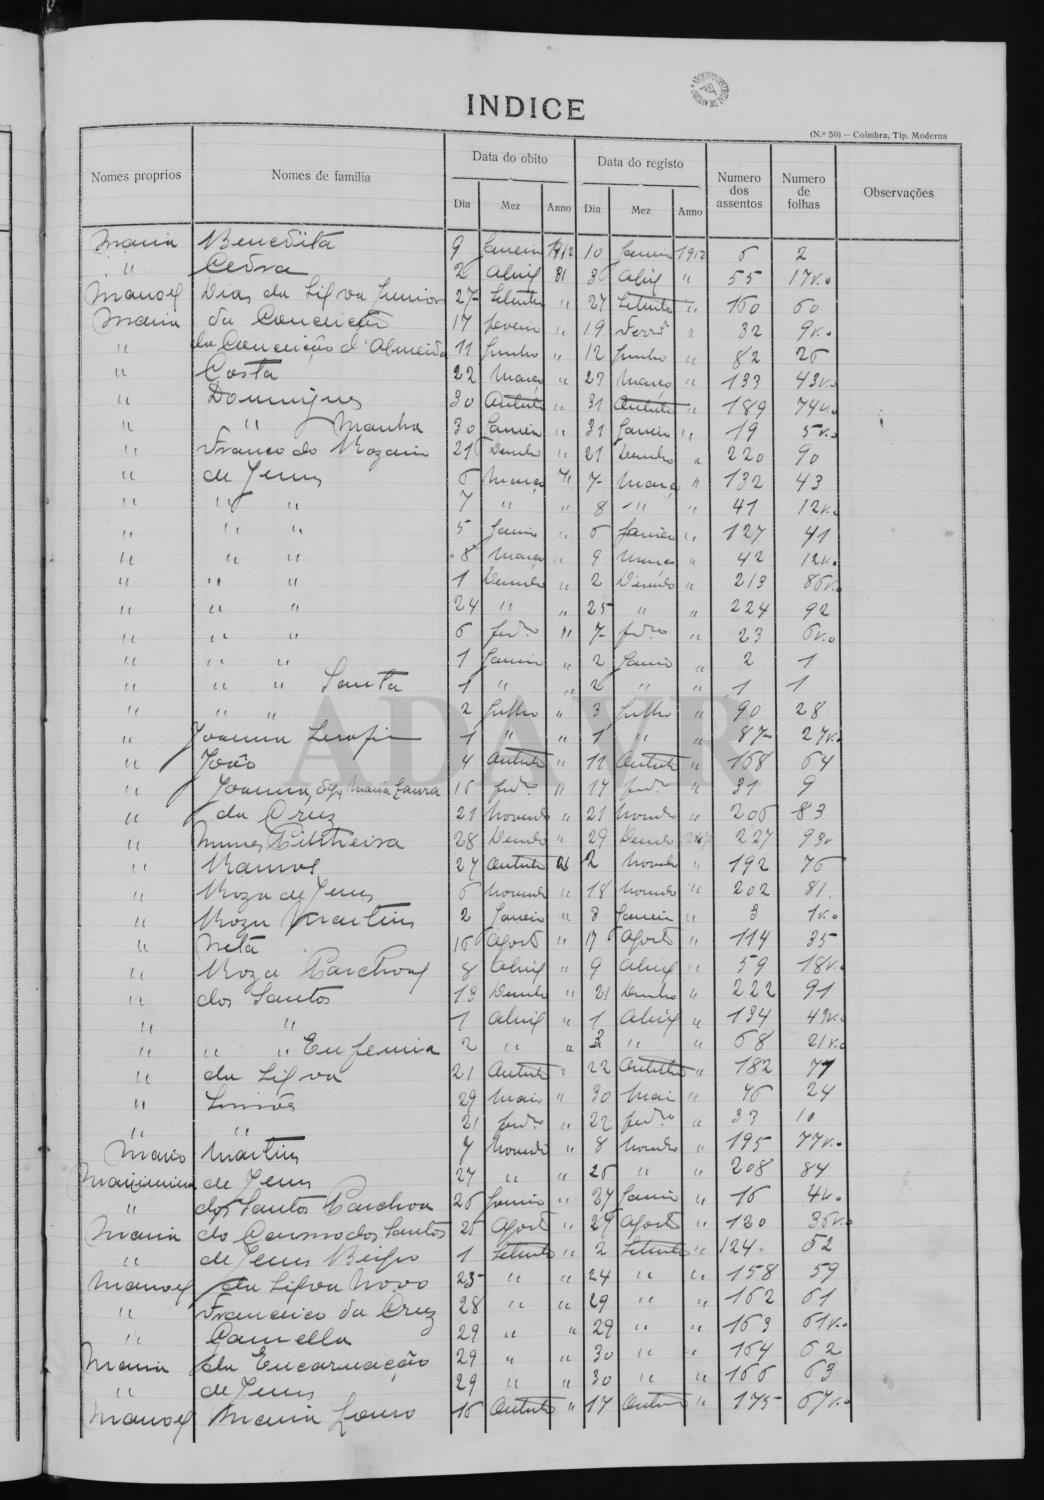 INDICE
(N.º 50) — Coimbra, Tip. Moderna
Nomes proprios Nomes de familia Data do obito Data do registo Numero dos assentos Numero de folhas Observações
Dia Mez Anno Dia Mez Anno
Maria Benedita 9 Janeiro 1912 10 Janeiro 1912 6 2
" Cedra 2 Abril 3 Abril " 55 17v.o
Manoel Dias da Silva Junior 27 Setembro " 27 Setembro " 160 60
Maria da Conceição 17 Fevereiro " 19 Fevro " 32 9v.o
" da Conceição d'Almeida 11 Junho " 12 Junho " 82 26
" Costa 22 Março " 23 Março " 133 43v.o
" Domingues 30 Outubro " 31 Outubro " 189 74v.o
" " Manha 30 Janeiro " 31 Janeiro " 19 5v.o
" Franco do Rozario 21 Dezembro " 21 Dezembro " 220 90
" de Jesus 6 Março " 7 Março " 132 43
" " " 7 " " 8 " " 41 12v.o
" " " 5 Janeiro " 6 Janeiro " 127 41
" " " 8 Março " 9 Março " 42 12v.o
" " " 1 Dezembro " 2 Dezembro " 213 86v.o
" " " 24 " " 25 " " 224 92
" " " 6 Fevro " 7 Fevro " 23 6v.o
" " " 1 Janeiro " 2 Janeiro " 2 1
" " " Santa 1 " " 2 " " 1 1
" " " 2 Julho " 3 Julho " 90 28
" Joanna Serafim 1 " " 1 " " 87 27v.o
" João 4 Outubro " 11 Outubro " 168 64
" Joanna, Maria Laura 16 Fevro " 17 Fevro " 31 9
" da Cruz 21 Novembro " 21 Novembro " 206 83
" Nunes 28 Dezembro " 29 Dezembro 227 93v
" Ramos 27 Outubro 2 Novembro " 192 76
" Roza de Jesus 6 Novembro " 18 Novembro " 202 81
" Roza Martins 2 Janeiro " 3 Janeiro " 3 1v.o
" Neta 16 Agosto " 17 Agosto " 114 35
" Roza 8 Abril " 9 Abril " 59 18v.o
" dos Santos 13 Dezembro " 21 Dezembro " 222 91
" " 1 Abril " 1 Abril " 134 43v.o
" " " Eufemia 2 " " 3 " " 68 21v.o
" da Silva 21 Outubro " 22 Outubro " 182 71
" Simões 29 Maio " 30 Maio " 76 24
" " 21 Fevro " 22 Fevro " 33 10
Mario Martins 7 Novembro " 8 Novembro " 195 77v.o
Maximina de Jesus 27 " " 26 " " 208 84
" dos Santos 26 Janeiro " 27 Janeiro " 16 4v.o
Maria do Carmo dos Santos 26 Agosto " 27 Agosto " 120 36v.o
" de Jesus 1 Setembro " 2 Setembro " 124 52
Manoel da Silva Novo 23 " " 24 " " 158 59
" Francisco da Cruz 28 " " 29 " " 162 61
" Gamella 29 " " 29 " " 163 61v.o
Maria da Encarnação 29 " " 30 " " 164 62
" de Jesus 29 " " 30 " " 166 63
Manoel Maria Louro 16 Outubro " 17 Outubro " 175 67v.o
ADAVR